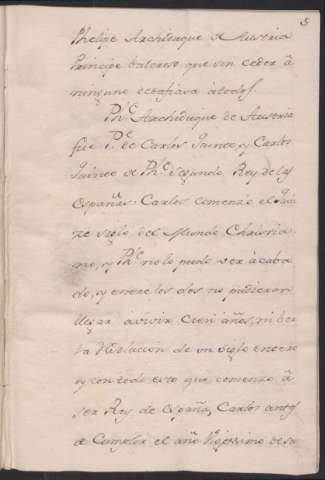 5
Phelipe Archiduque de Austria
Principe valeroso que sin ceder â
ninguno desafiava à todos.
Phe. Archiduque de Austria
fue Pe. de Carlos Quinto, y Carlos
Quinto de Phe. Segundo Rey de las
Españas: Carlos comenzo el
siglo del Mundo Christia
no, y Phe. no lo pudo ver acaba
do, y entre los dos no pudieron
llegar à vivir Cien años, ni ber
la Revelacion de un siglo entero
y con todo esto que comenzo â
ser Rey de España, Carlos antes
de Cumplir el año Vigessimo de su